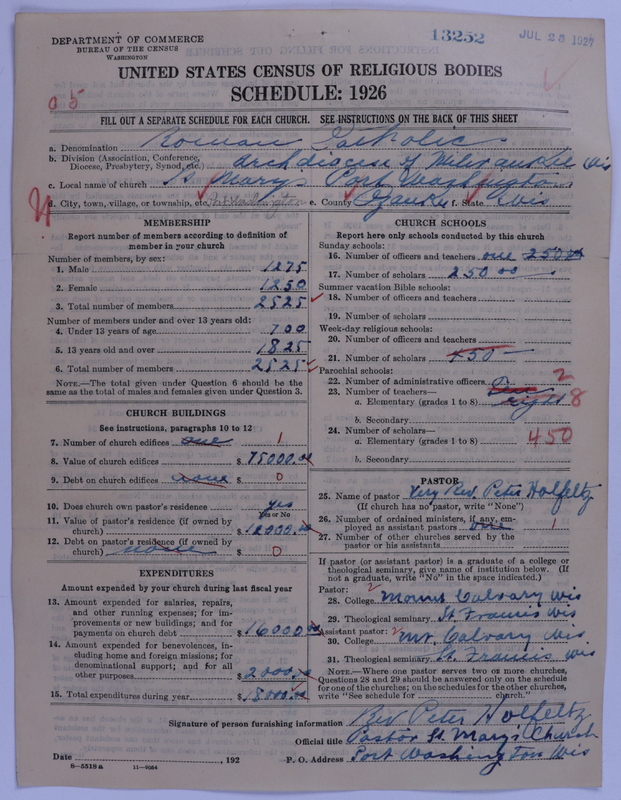 DEPARTMENT OF COMMERCE
BUREAU OF THE CENSUS
WASHINGTON
13252
JUL 26 1927
UNITED STATES CENSUS OF RELIGIOUS BODIES
SCHEDULE: 1926
FILL OUT A SEPARATE SCHEDULE FOR EACH CHURCH. SEE INSTRUCTIONS ON THE BACK OF THIS SHEET
a. Denomination Roman Catholic
b. Division (Association, Conference, Diocese, Presbytery, Synod, etc.) Archdiocese of Milwaukee Wis
c. Local name of church St Mary's Port Washington
d. City, town, village, or township, etc. Port Washington e. County Ozaukee f. State Wis
MEMBERSHIP
Report number of members according to definition of
member in your church
Number of members, by sex:
1. Male 1275
2. Female 1250
3. Total number of members 2525
Number of members under and over 13 years old:
4. Under 13 years of age 700
5. 13 years old and over 1825
6. Total number of members 2525
NOTE.—The total given under Question 6 should be the
same as the total of males and females given under Question 3.
CHURCH BUILDINGS
See instructions, paragraphs 10 to 12
7. Number of church edifices one 1
8. Value of church edifices $ 75000.00
9. Debt on church edifices none $ 0
10. Does church own pastor's residence yes
Yes or No
11. Value of pastor's residence (if owned by
church) $ 12000.00
12. Debt on pastor's residence (if owned by
church) none $ 0
EXPENDITURES
Amount expended by your church during last fiscal year
13. Amount expended for salaries, repairs,
and other running expenses; for im-
provements or new buildings; and for
payments on church debt $ 16000.00
14. Amount expended for benevolences, in-
cluding home and foreign missions; for
denominational support; and for all
other purposes $ 2000.00
15. Total expenditures during year $ 18000.00
CHURCH SCHOOLS
Report here only schools conducted by this church
Sunday schools:
16. Number of officers and teachers one 250.00
17. Number of scholars 250 00
Summer vacation Bible schools:
18. Number of officers and teachers
19. Number of scholars
Week-day religious schools:
20. Number of officers and teachers
21. Number of scholars 450
Parochial schools:
22. Number of administrative officers 2
23. Number of teachers—
a. Elementary (grades 1 to 8) eight 8
b. Secondary
24. Number of scholars—
a. Elementary (grades 1 to 8) 450
b. Secondary
PASTOR
25. Name of pastor Very Rev. Peter Holfeltz
(If church has no pastor, write "None")
26. Number of ordained ministers, if any, em-
ployed as assistant pastors one 1
27. Number of other churches served by the
pastor or his assistants
If pastor (or assistant pastor) is a graduate of a college or
theological seminary, give name of institution below. (If
not a graduate, write "No" in the space indicated.)
Pastor:
28. College Mount Calvary Wis
29. Theological seminary St. Francis Wis
Assistant pastor:
30. College Mt. Calvary Wis
31. Theological seminary St. Francis Wis
NOTE.—Where one pastor serves two or more churches,
Questions 28 and 29 should be answered only on the schedule
for one of the churches; on the schedules for the other churches,
write "See schedule for church."
Signature of person furnishing information Rev Peter Holfeltz
Official title Pastor St. Mary's Church
Date , 192 P. O. Address Port Washington Wis
8—5518a 11—9064